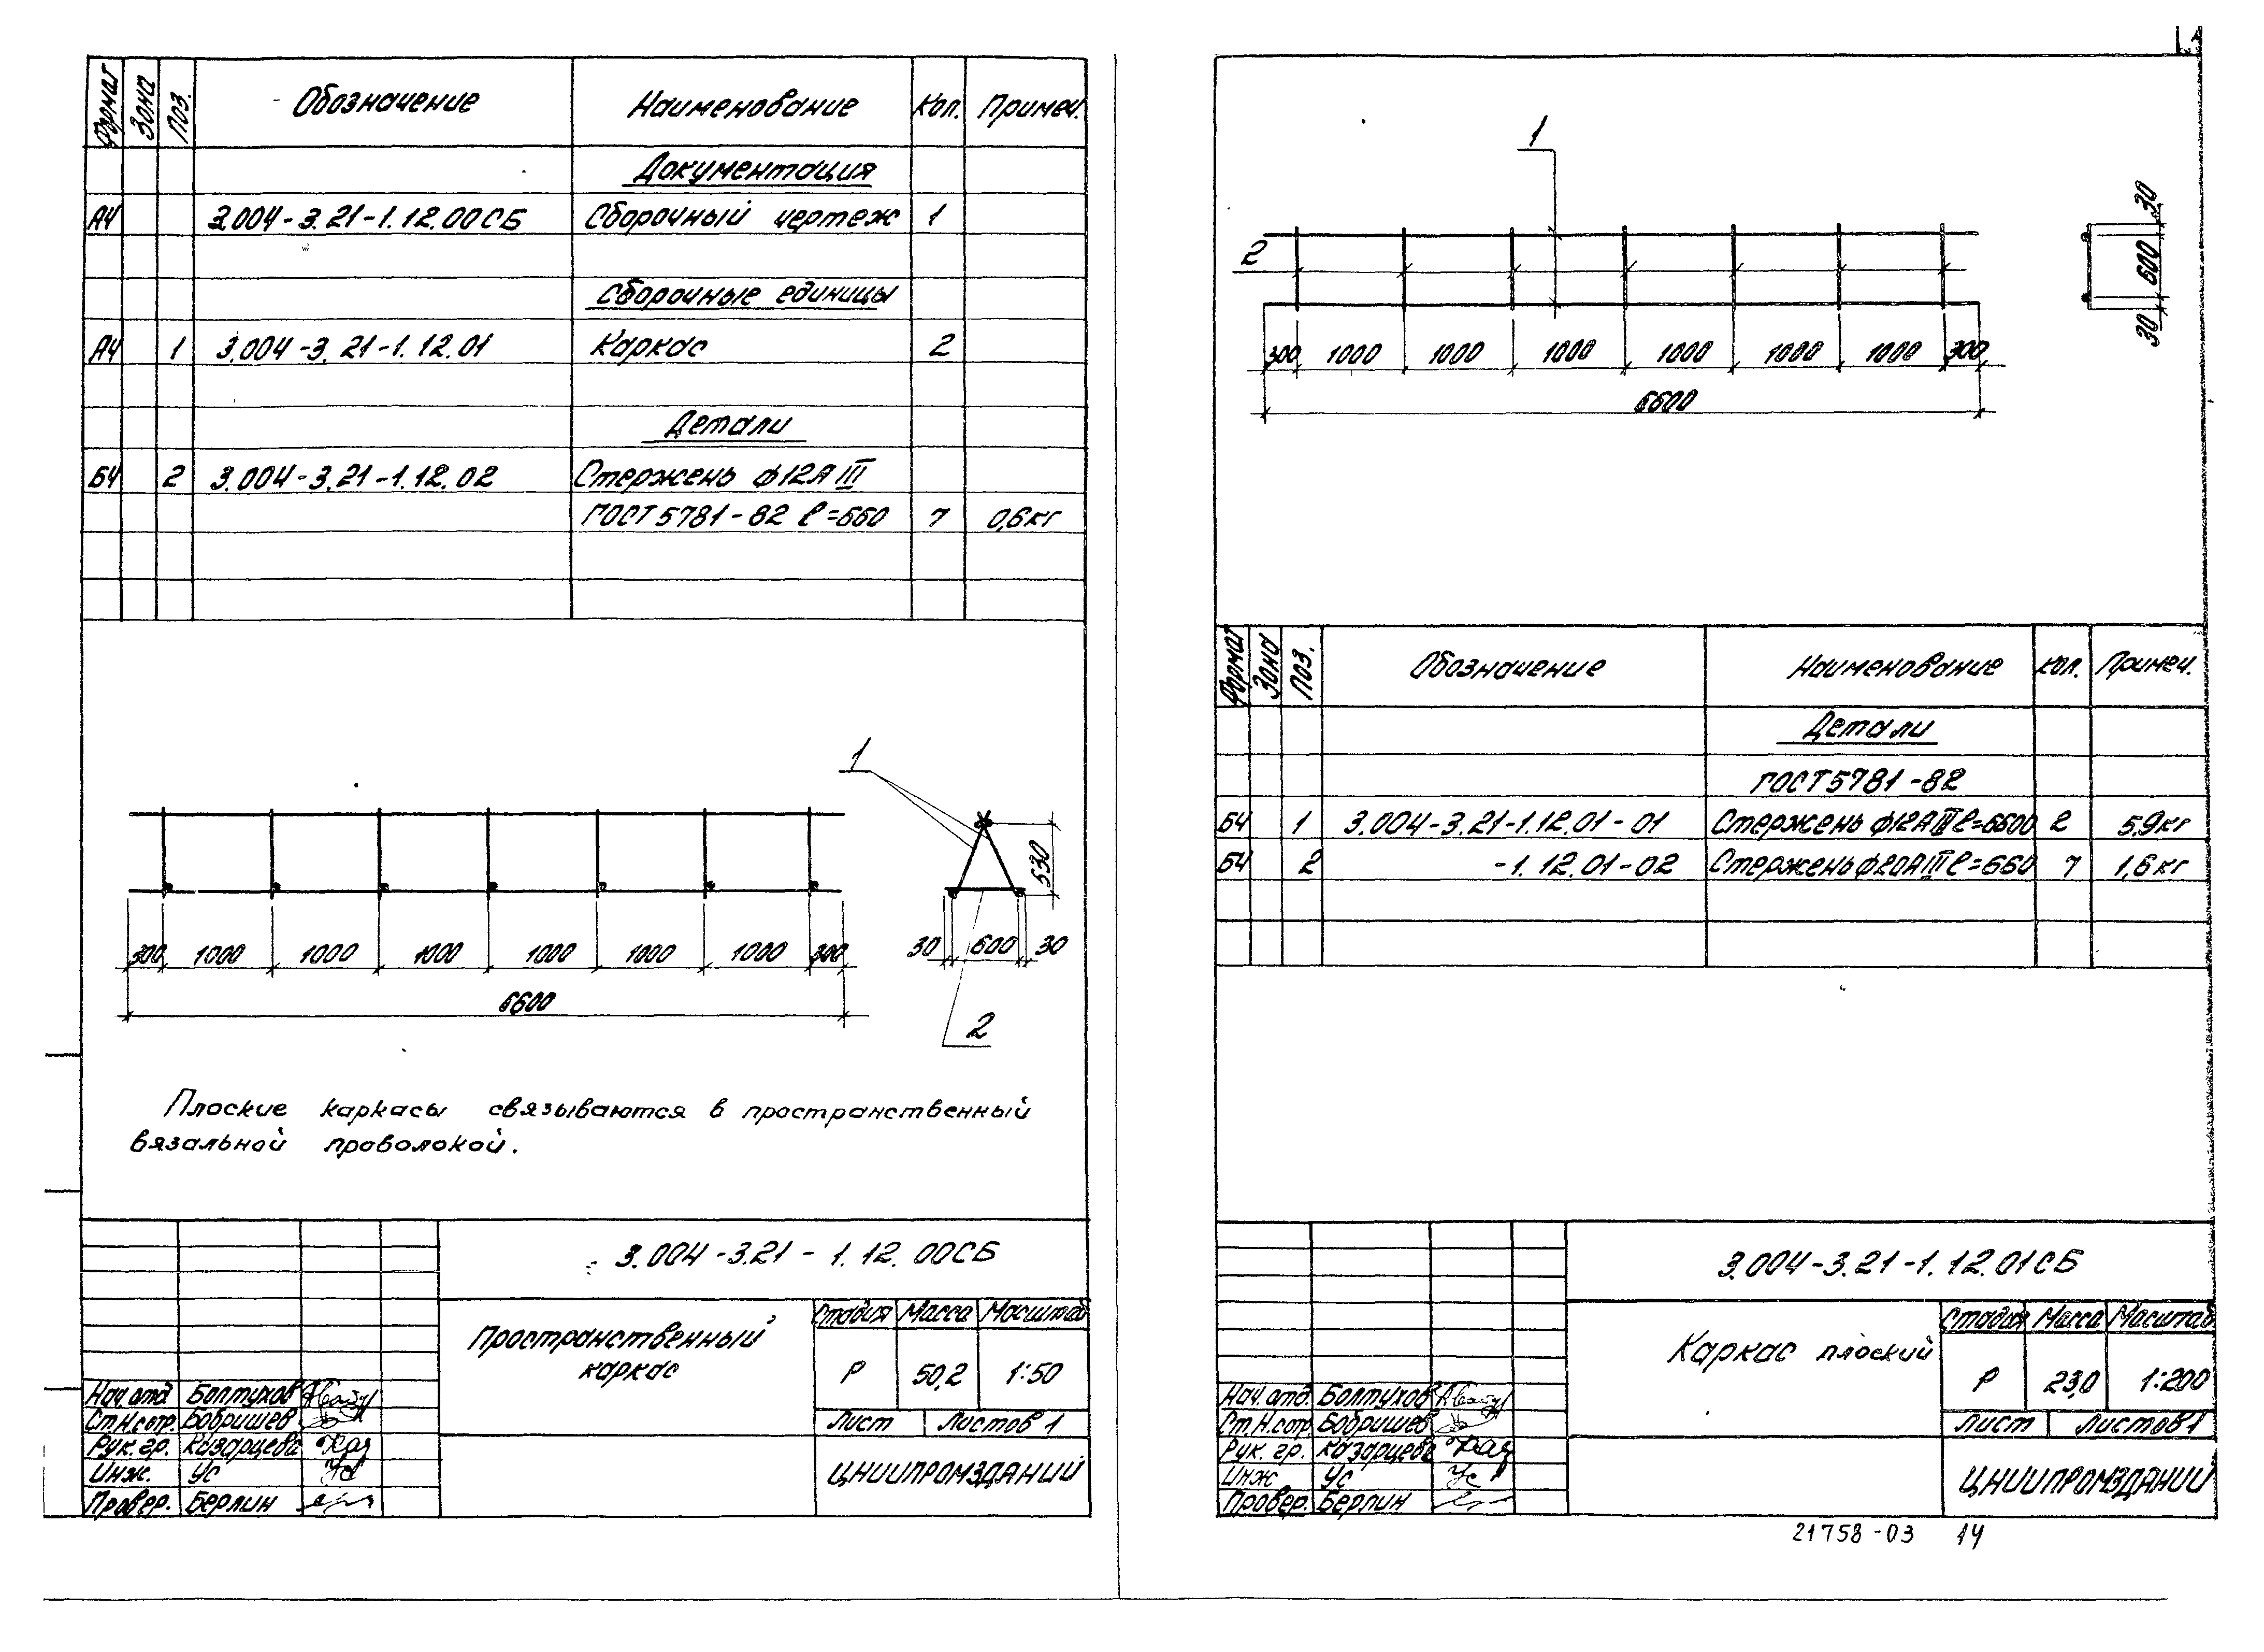 Формат Зона Поз. Обозначение Наименование Кол. Примеч.
Документация
А4 3.004-3.21-1.12.00СБ Сборочный чертеж 1
Сборочные единицы
А4 1 3.004-3.21-1.12.01 Каркас 2
Детали
Б4 2 3.004-3.21-1.12.02 Стержень ф12АIII
ГОСТ 5781-82 ℓ=660 7 0,6кг
1
530
300 1000 1000 1000 1000 1000 1000 300
30 600 30
6600
2
Плоские каркасы связываются в пространственный
вязальной проволокой.
3.004-3.21-1.12.00СБ
Пространственный
каркас
Стадия Масса Масштаб
Р 50,2 1:50
Лист Листов 1
ЦНИИПРОМЗДАНИЙ
Нач.отд. Болтухов
Ст.Н.сотр. Бобришев
Рук.гр. Казарцева
Инж. Ус Ус
Провер. Берлин
1
2
30
600
30
300 1000 1000 1000 1000 1000 1000 300
6600
Формат Зона Поз. Обозначение Наименование Кол. Примеч.
Детали
ГОСТ 5781-82
Б4 1 3.004-3.21-1.12.01-01 Стержень ф12АIII ℓ=6600 2 5,9кг
Б4 2 -1.12.01-02 Стержень ф20АIII ℓ=660 7 1,6кг
3.004-3.21-1.12.01СБ
Каркас плоский
Стадия Масса Масштаб
Р 23,0 1:200
Лист Листов 1
ЦНИИПРОМЗДАНИЙ
Нач.отд. Болтухов
Ст.Н.сотр. Бобришев
Рук.гр. Казарцева
Инж Ус Ус
Провер. Берлин
21758-03 14